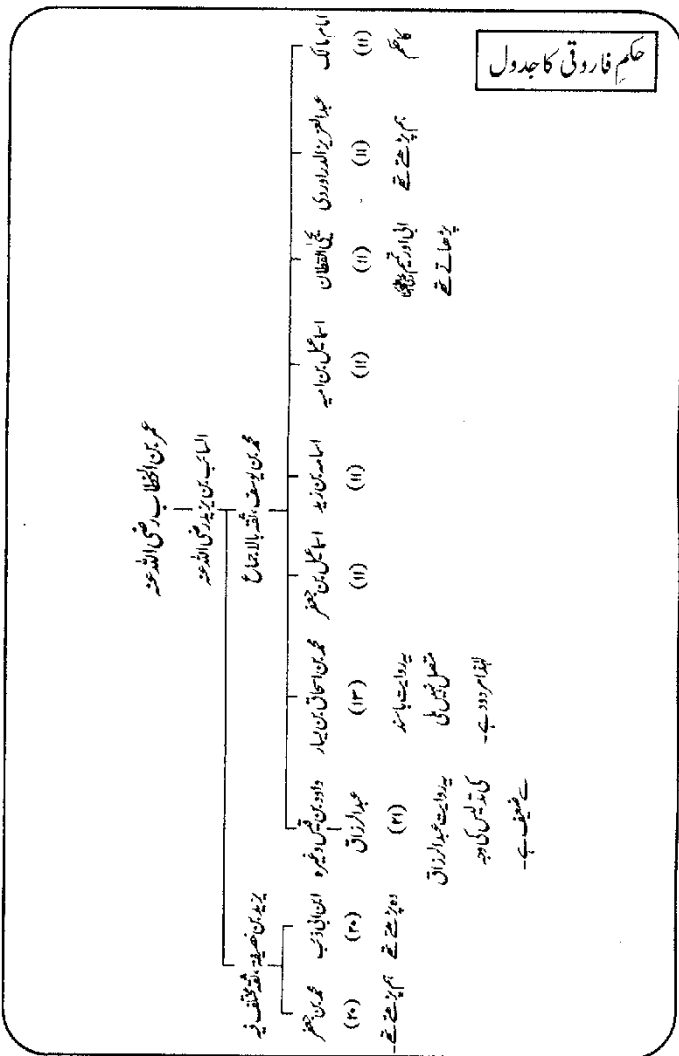 حکمِ فاروقی کا جدول
عمر بن الخطاب رضی اللہ عنہ
السائب بن یزید رضی اللہ عنہ
محمد بن یوسف، ثقہ بالاجماع
امام مالک
(۱۱)
کا حکم
عبدالعزیز الدراوردی
(۱۱)
ہم پڑھتے تھے
یحیٰ القطان
(۱۱)
ابی اور تمیم
پڑھاتے تھے
اسماعیل بن امیہ
(۱۱)
اسامہ بن زید
(۱۱)
اسماعیل بن جعفر
(۱۱)
محمد بن اسحاق بن یسار
(۱۳)
یہ روایت باسند
متصل نہیں ملی
لہٰذا مردود ہے۔
داود بن قیس وغیرہ
عبدالرزاق
(۲۱)
یہ روایت عبدالرزاق
کی تدلیس کی وجہ
سے ضعیف ہے۔
یزید بن خصیفہ، ثقہ مختلف فیہ
ابن ابی ذئب
(۲۰)
وہ پڑھتے تھے
محمد بن جعفر
(۲۰)
ہم پڑھتے تھے۔